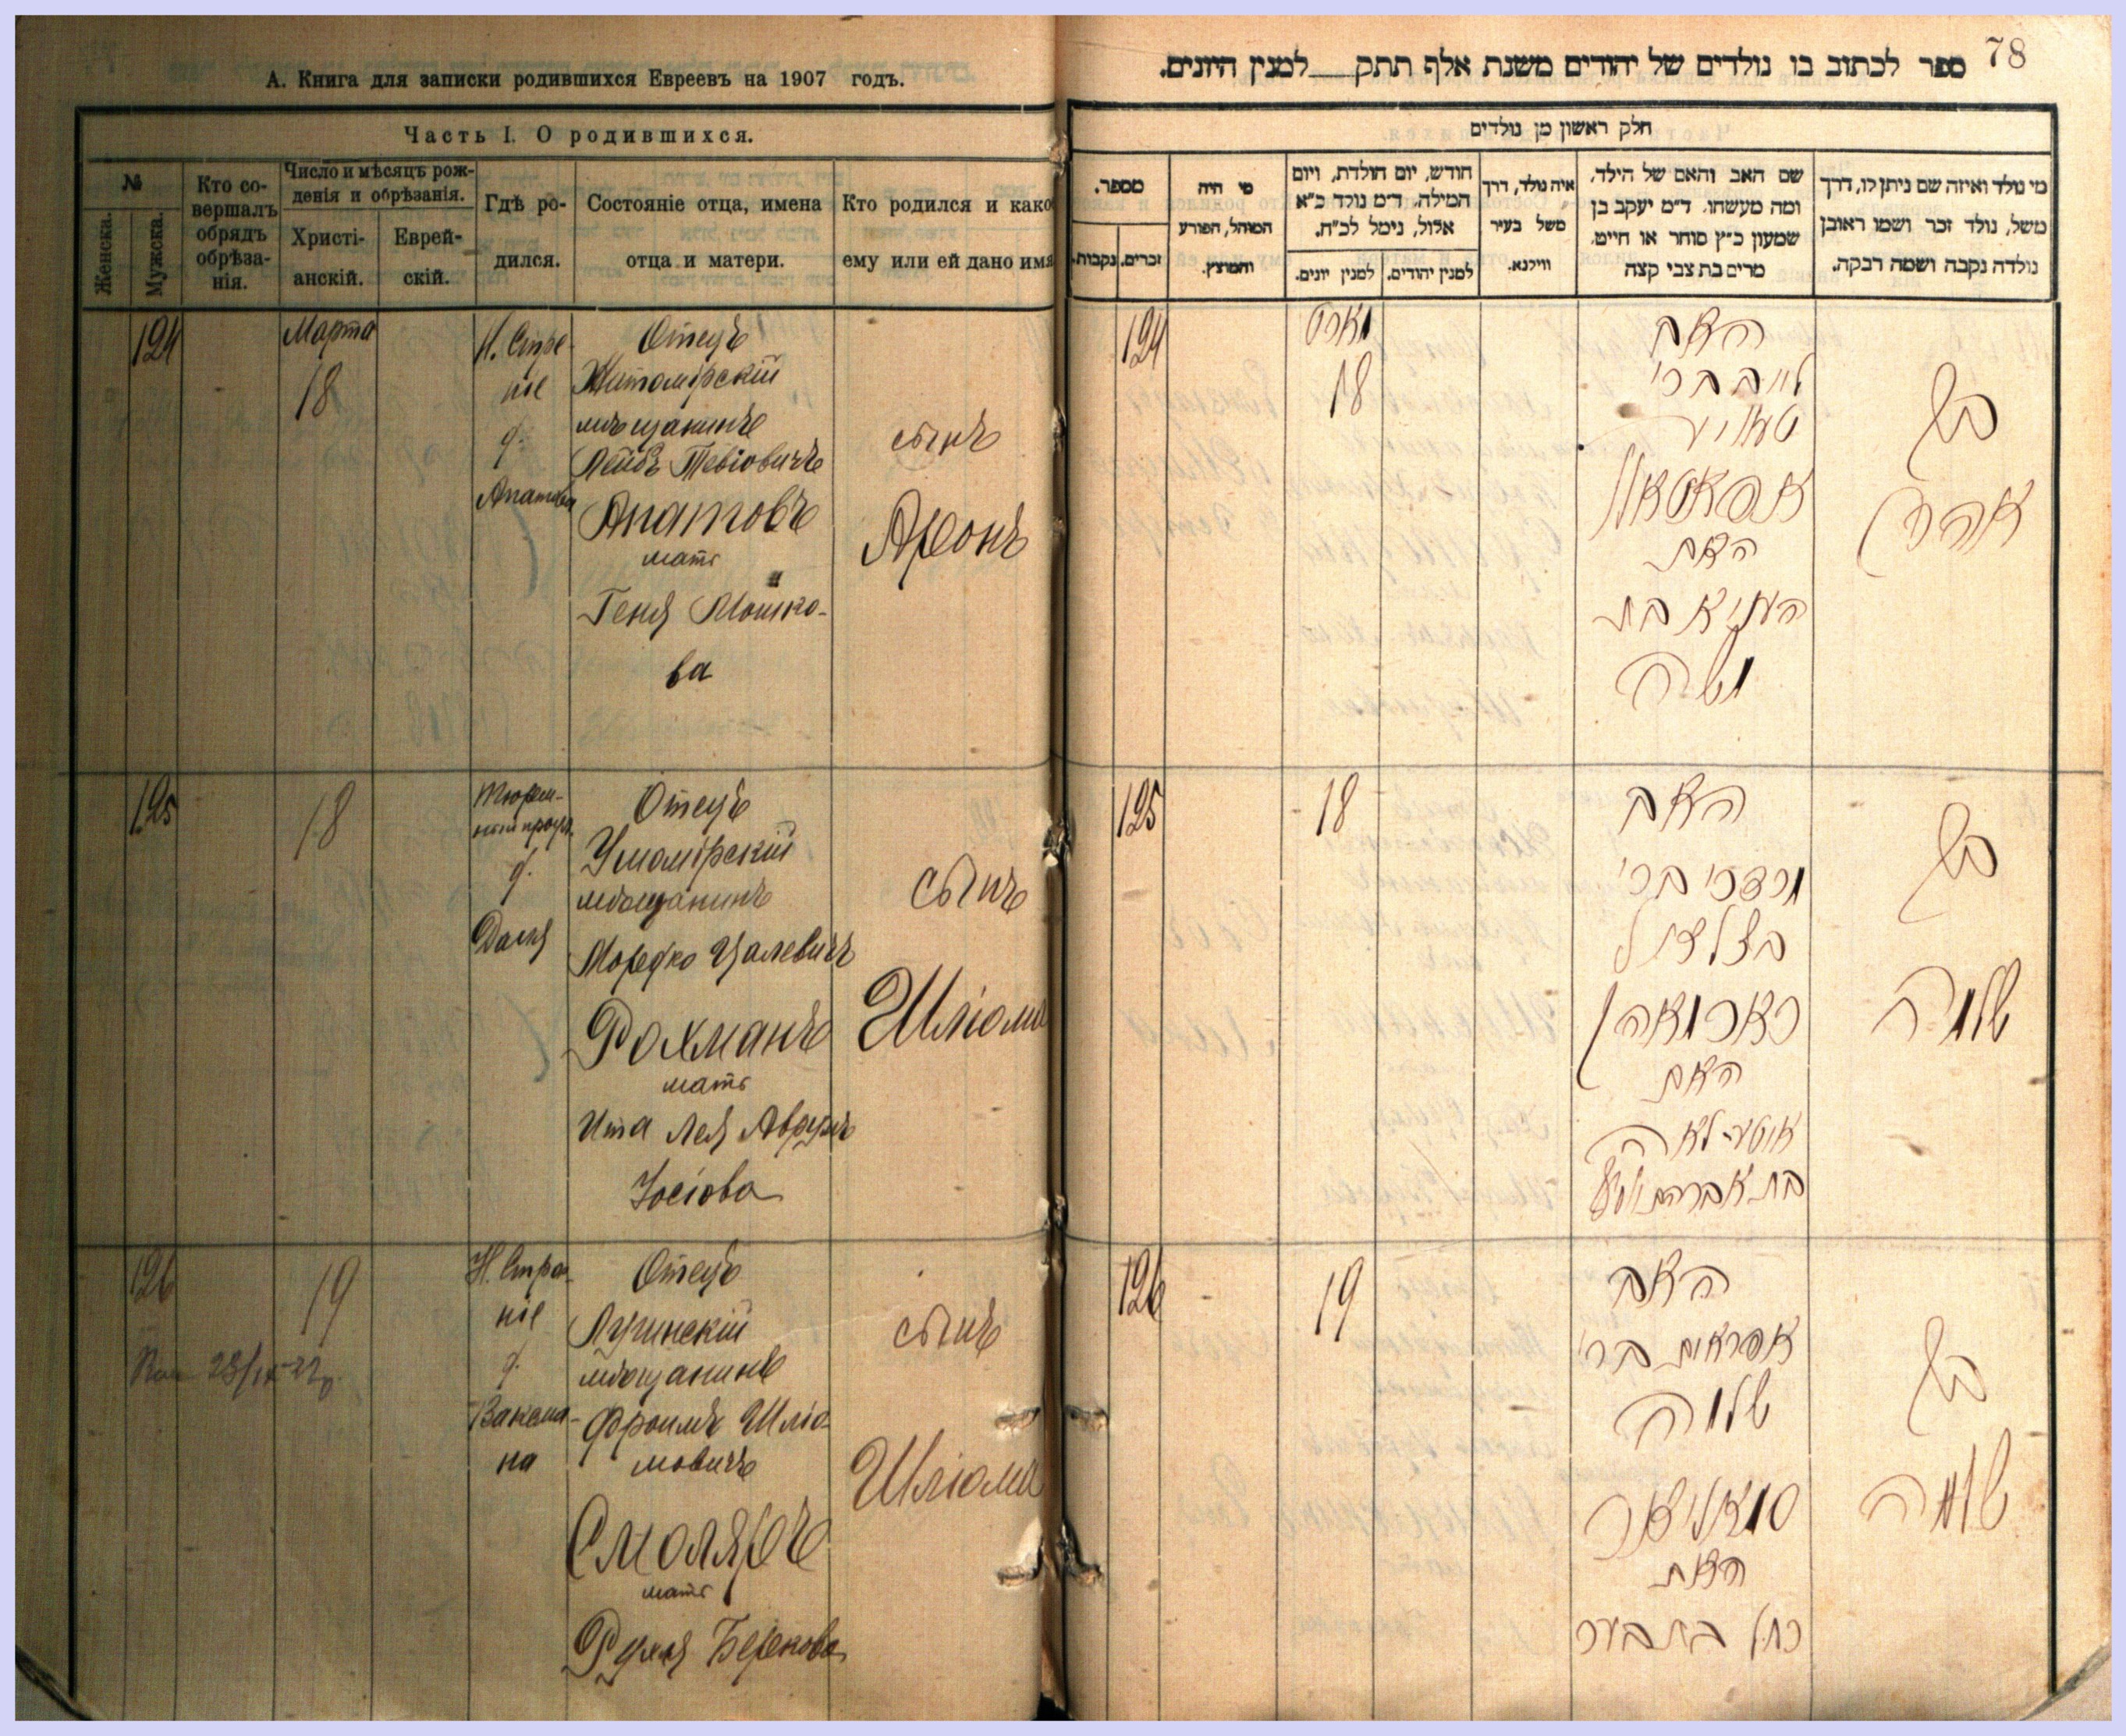 А. Книга для записки родившихся Евреевъ на 1907 годъ.
Часть I. О родившихся.
№
Женска.
Мужска.
Кто со-
вершалъ
обрядъ
обрѣза-
нія.
Число и мѣсяцъ рож-
денія и обрѣзанія.
Христі-
анскій.
Еврей-
скій.
Гдѣ ро-
дился.
Состояніе отца, имена
отца и матери.
Кто родился и како
ему или ей дано имя
124
Марта
18
Н. Стро
ніе
д.
Апатова
Отецъ
Житомірскій
мѣщанинъ
Лейбъ Тевіовичъ
Апатовъ
мать
Геня Мошко-
ва
сынъ
Аронъ
125
18
д.
Отецъ
мѣщанинъ
Мордко Цалевичъ
Рохманъ
мать
Ита Лея Аврумъ
Іосіова
сынъ
Шліома
126
19
Н. Строе
ніе
д.
Ваксма-
на
Отецъ
Лугинскій
мѣщанинъ
Фроимъ Шліо-
мовичъ
Смоляръ
мать
Рухля Беркова
сынъ
Шліома
78
ספר לכתוב בו נולדים של יהודים משנת אלף תתק__למנין היונים.
חלק ראשון מן נולדים
מספר.
נקבות.
זכרים.
מי היה
המוהל, הפורע
והמוצץ.
חודש, יום הולדת, ויום
המילה, ד״מ נולד כ״א
אלול, נימל לכ״ח.
למנין יונים.
למנין יהודים.
איה נולד, דרך
משל בעיר
ווילנא.
שם האב והאם של הילד,
ומה מעשהו. ד״מ יעקב בן
שמעון כ״ץ סוחר או חייט,
מרים בת צבי קצה
מי נולד ואיזה שם ניתן לו, דרך
משל, נולד זכר ושמו ראובן
נולדה נקבה ושמה רבקה.
124
מארט
18
האב
לייב ברי
טעוויר
אפאטאוו
האם
העניא בת
משה
בן
אהרן
125
18
האב
מרדכי ברי
בצלאל
ראכמאן
האם
איטע-לאה
בת אברהם יוסף
בן
שלמה
126
19
האב
אפראים ברי
שלמה
סמאליאר
האם
רחל בת בער
בן
שלמה